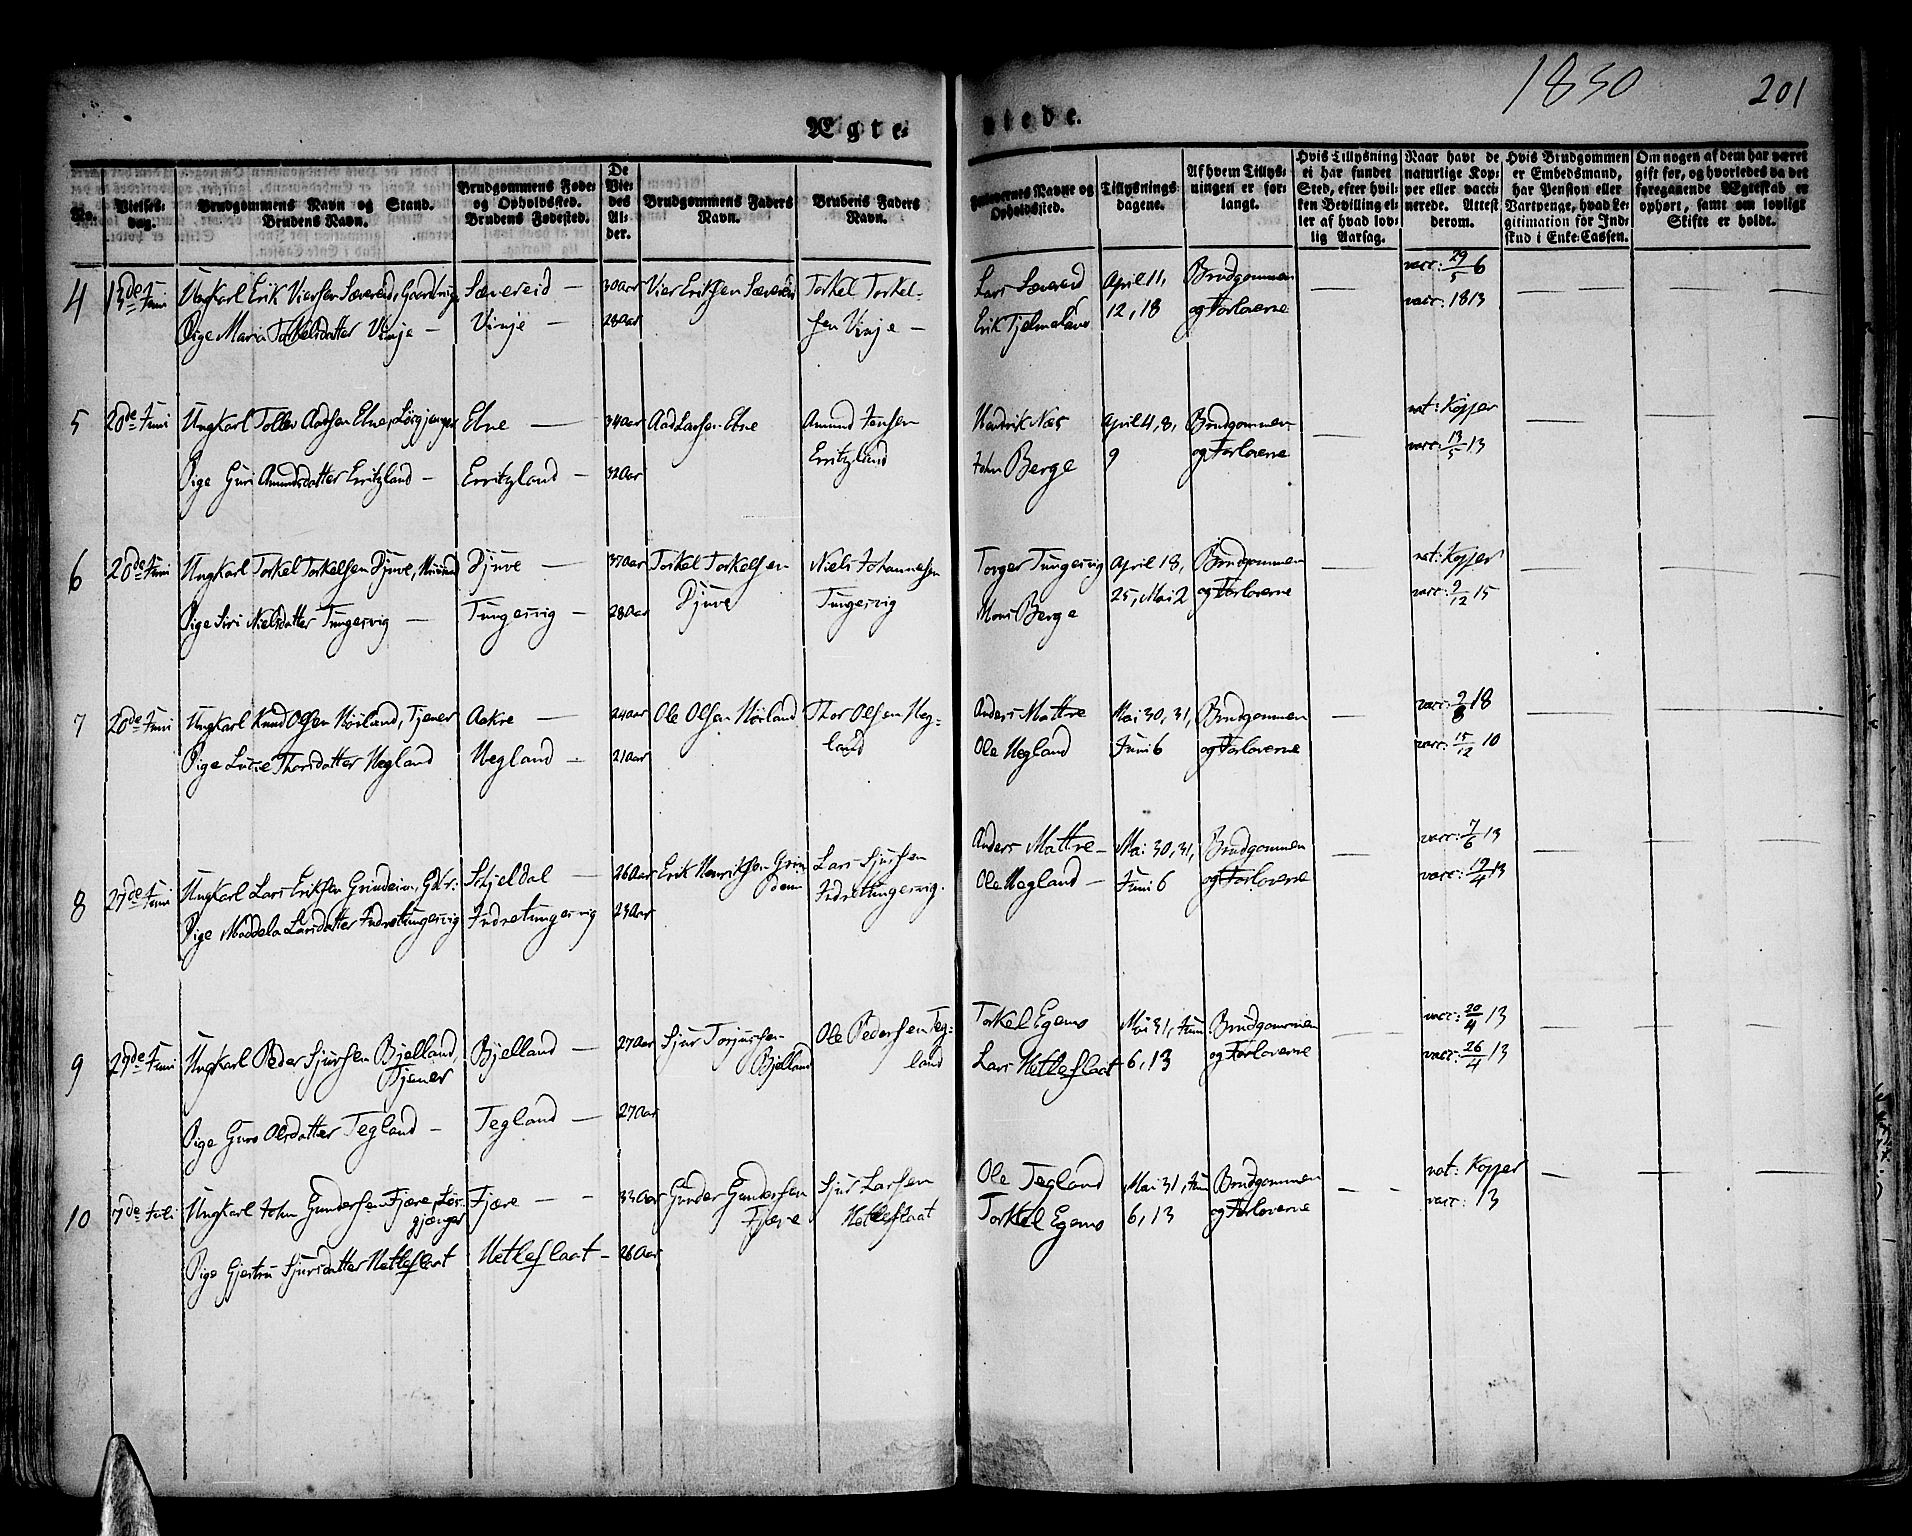 1830
201
Ægte-
viede.
No.
Vielses-
dag.
Brudgommens Navn og Stand.
Brudens Navn.
Brudgommens Føde-
og Opholdssted.
Brudens Fødested.
De
Vie-
des
Al-
der.
Brudgommens Faders
Navn.
Brudens Faders
Navn.
Forlovernes Navne og
Opholdssted.
Tillysnings-
dagene.
Af hvem Tillys-
ningen er for-
langt.
Hvis Tillysning
ei har fundet
Sted, efter hvil-
ken Bevilling el-
ler af hvad lov-
lig Aarsag.
Naar havt de
naturlige Kop-
per eller vacci-
nerede. Attest
derom.
Hvis Brudgommen
er Embedsmand,
har Pension eller
Vartpenge, hvad Le-
gitimation for Ind-
skud i Enke-Cassen.
Om nogen af dem har været
gift før, og hvorledes da det
foregaaende Ægteskab er
ophørt, samt om lovligt
Skifte er holdt.
4 13de Juni Ungkarl Erik Viersen Sævereid, Sævereid — 30 Aar Vier Eriksen Sævereid Torkel Torkel- Lars Sævereid April 11, Brudgommen vacc: 29/5 6
Pige Mari Torkelsdatter Vinje — Vinje — 28 Aar sen Vinje — Erik Tjelmeland 12, 18 og Forloverne vacc: 1813
5 20de Juni Ungkarl Tollev Aadsen Ebne, Ebne — 34 Aar Aad Larsen Ebne Amund Jansen Hendrik Næs April 4, 8, Brudgommen nat: Kopper
Pige Guri Amundsdatter Erritzland — Erritzland — 32 Aar Erritzland John Berge 9 og Forloverne vacc: 13/5 13
6 20de Juni Ungkarl Torkel Torkelsen Djuve, Djuve — 37 Aar Torkel Torkelsen Niels Johannesen Torger Tungesvig April 18, Brudgommen nat: Kopper
Pige Siri Nielsdatter Tungesvig — Tungesvig — 28 Aar Djuve Tungesvig Mons Berge 25, Mai 2 og Forloverne vacc: 9/12 15
7 20de Juni Ungkarl Knud Olsen Høiland, Tjener Aakre — 24 Aar Ole Olsen Høiland Thor Olsen Heg- Anders Mattre Mai 30, 31, Brudgommen — vacc: 2/8 18
Pige Lucie Thorsdatter Hegland Hegland — 21 Aar land Ole Hegland Juni 6 og Forloverne vacc: 15/12 10
8 27de Juni Ungkarl Lars Eriksen Grindeim, Skjeldal — 26 Aar Erik Henriksen Grin- Lars Sjursen Anders Mattre — Mai 30, 31, Brudgommen — vacc: 7/6 13
Pige Maddela Larsdatter Indretungesvig Indretungesvig 23 Aar deim Indretungesvig. Ole Hegland — Juni 6 og Forloverne vacc: 19/4 13
9 29de Juni Ungkarl Peder Sjursen Bjelland, Bjelland — 27 Aar Sjur Torjussen Ole Pedersen Teg- Torkel Egemo Mai 31, Juni Brudgommen vacc: 20/4 13
Tjener Bjelland land Lars Hetleflaat 6, 13 og Forloverne vacc: 26/4 13
Pige Guro Olsdatter Tegland — Tegland — 27 Aar
10 7de Juli Ungkarl John Gundersen Fjære, Løs- Fjære — 33 Aar Gunder Gundersen Sjur Larsen Ole Tegland Mai 31, Juni Brudgommen nat: Kopper
gjænger Fjære Hetleflaat Torkel Egemo 6, 13 og Forloverne vacc: 13
Pige Gjertru Sjursdatter Hetleflaat Hetleflaat — 26 Aar